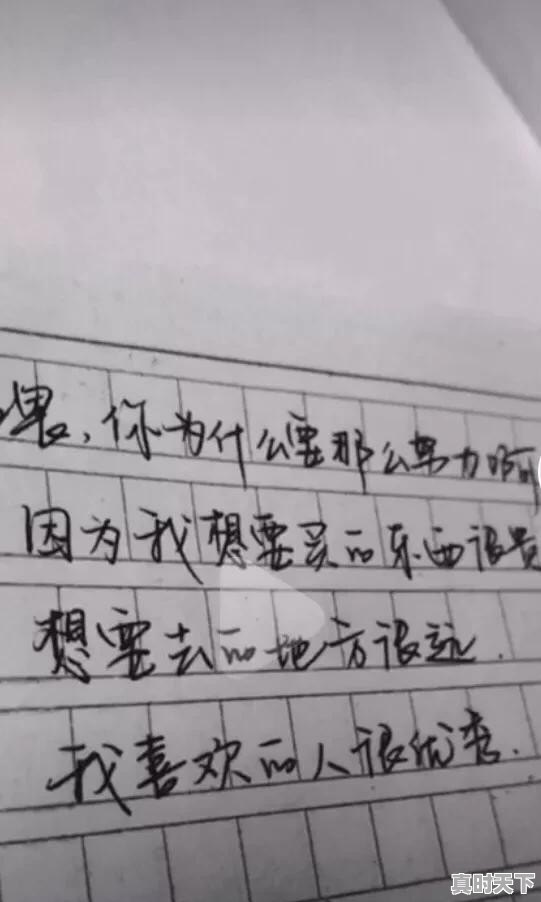 喂，你为什么要那么努力啊
因为我想要买的东西很贵
想要去的地方很远.
我喜欢的人很优秀.
真时天下